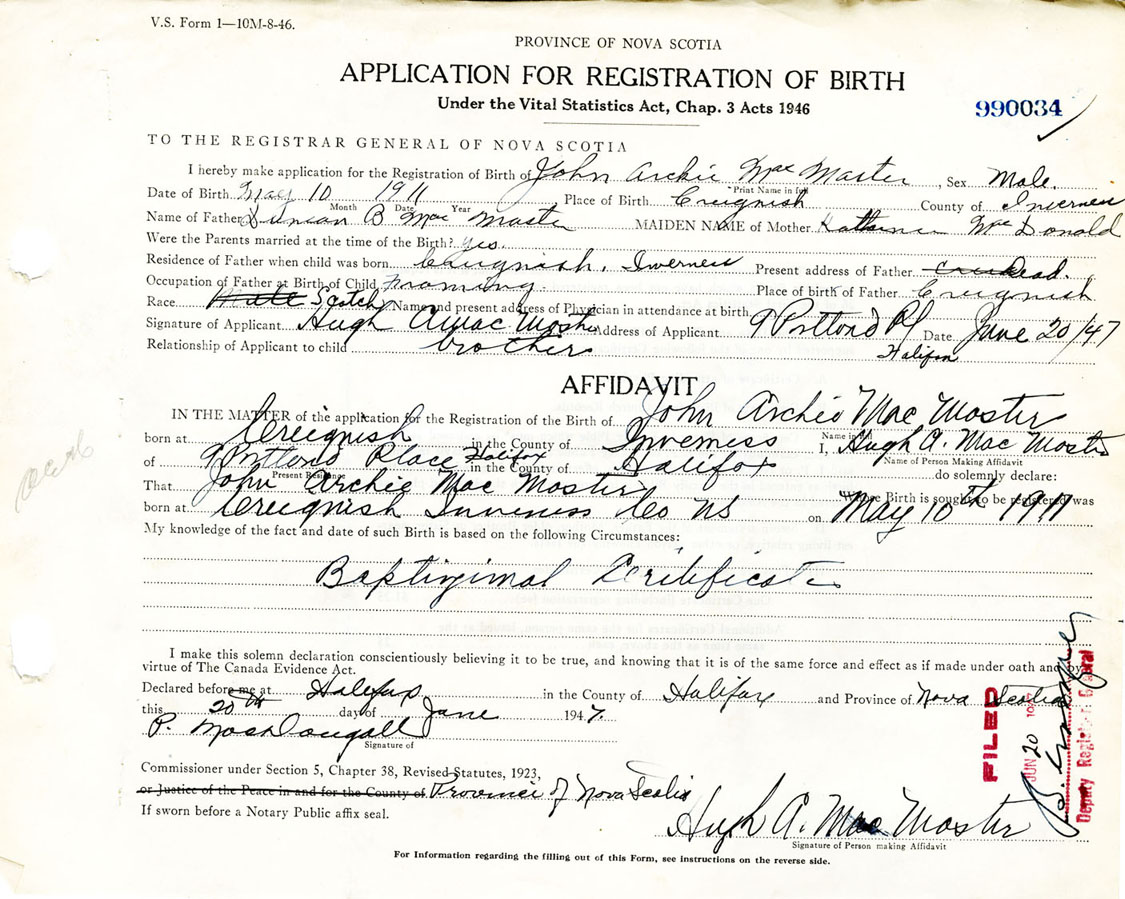 V.S. Form 1—10M-8-46.
PROVINCE OF NOVA SCOTIA
APPLICATION FOR REGISTRATION OF BIRTH
Under the Vital Statistics Act, Chap. 3 Acts 1946
990034
TO THE REGISTRAR GENERAL OF NOVA SCOTIA
I hereby make application for the Registration of Birth of John Archie Mac Master, Sex Male.
Print Name in full
Date of Birth May 10 1911 Place of Birth Creignish County of Inverness
Month Date Year
Name of Father Duncan B Mac Master MAIDEN NAME of Mother Katherine Mac Donald
Were the Parents married at the time of the Birth? yes.
Residence of Father when child was born Creignish, Inverness Present address of Father Dead.
Occupation of Father at Birth of Child Framing Place of birth of Father Creignish
Race Scotch Name and present address of Physician in attendance at birth
Signature of Applicant Hugh A Mac Moster Address of Applicant 9 Portlond Pl Date June 20/47
Halifax
Relationship of Applicant to child brother
AFFIDAVIT
IN THE MATTER of the application for the Registration of the Birth of John Archie Mac Moster
Name in full
born at Creignish in the County of Inverness I, Hugh A. Mac Moster
Name of Person Making Affidavit
of 9 Portlond Place Halifax in the County of Halifax do solemnly declare:
Present Residence
That John Archie Mac Moster whose Birth is sought to be registered was
born at Creignish Inverness Co NS on May 10th 1911
My knowledge of the fact and date of such Birth is based on the following Circumstances:
Baptizimal Certificate
I make this solemn declaration conscientiously believing it to be true, and knowing that it is of the same force and effect as if made under oath and by
virtue of The Canada Evidence Act.
Declared before me at Halifax in the County of Halifax and Province of Nova Scotia
this 20th day of June 1947.
P. MacDougall
Signature of
Commissioner under Section 5, Chapter 38, Revised Statutes, 1923,
or Justice of the Peace in and for the County of Province of Nova Scotia
If sworn before a Notary Public affix seal.
Hugh A. Mac Moster
Signature of Person making Affidavit
For Information regarding the filling out of this Form, see instructions on the reverse side.
FILED
JUN 20 1947
Deputy Registrar General